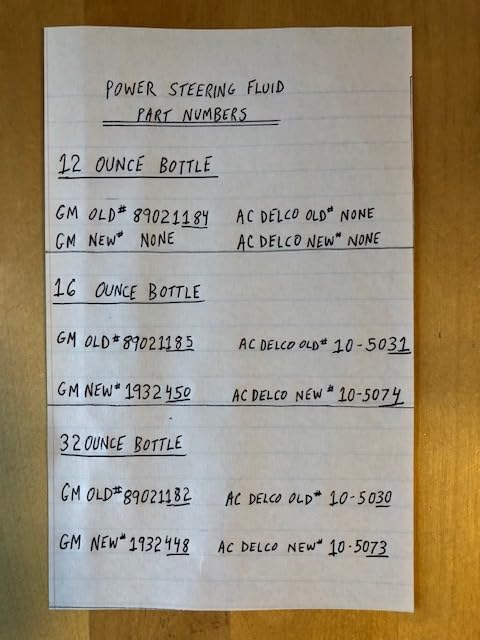 POWER STEERING FLUID
PART NUMBERS
12 OUNCE BOTTLE
GM OLD# 89021184 AC DELCO OLD# NONE
GM NEW# NONE AC DELCO NEW# NONE
16 OUNCE BOTTLE
GM OLD# 89021185 AC DELCO OLD# 10-5031
GM NEW# 1932450 AC DELCO NEW# 10-5074
32 OUNCE BOTTLE
GM OLD# 89021182 AC DELCO OLD# 10-5030
GM NEW# 1932448 AC DELCO NEW# 10-5073